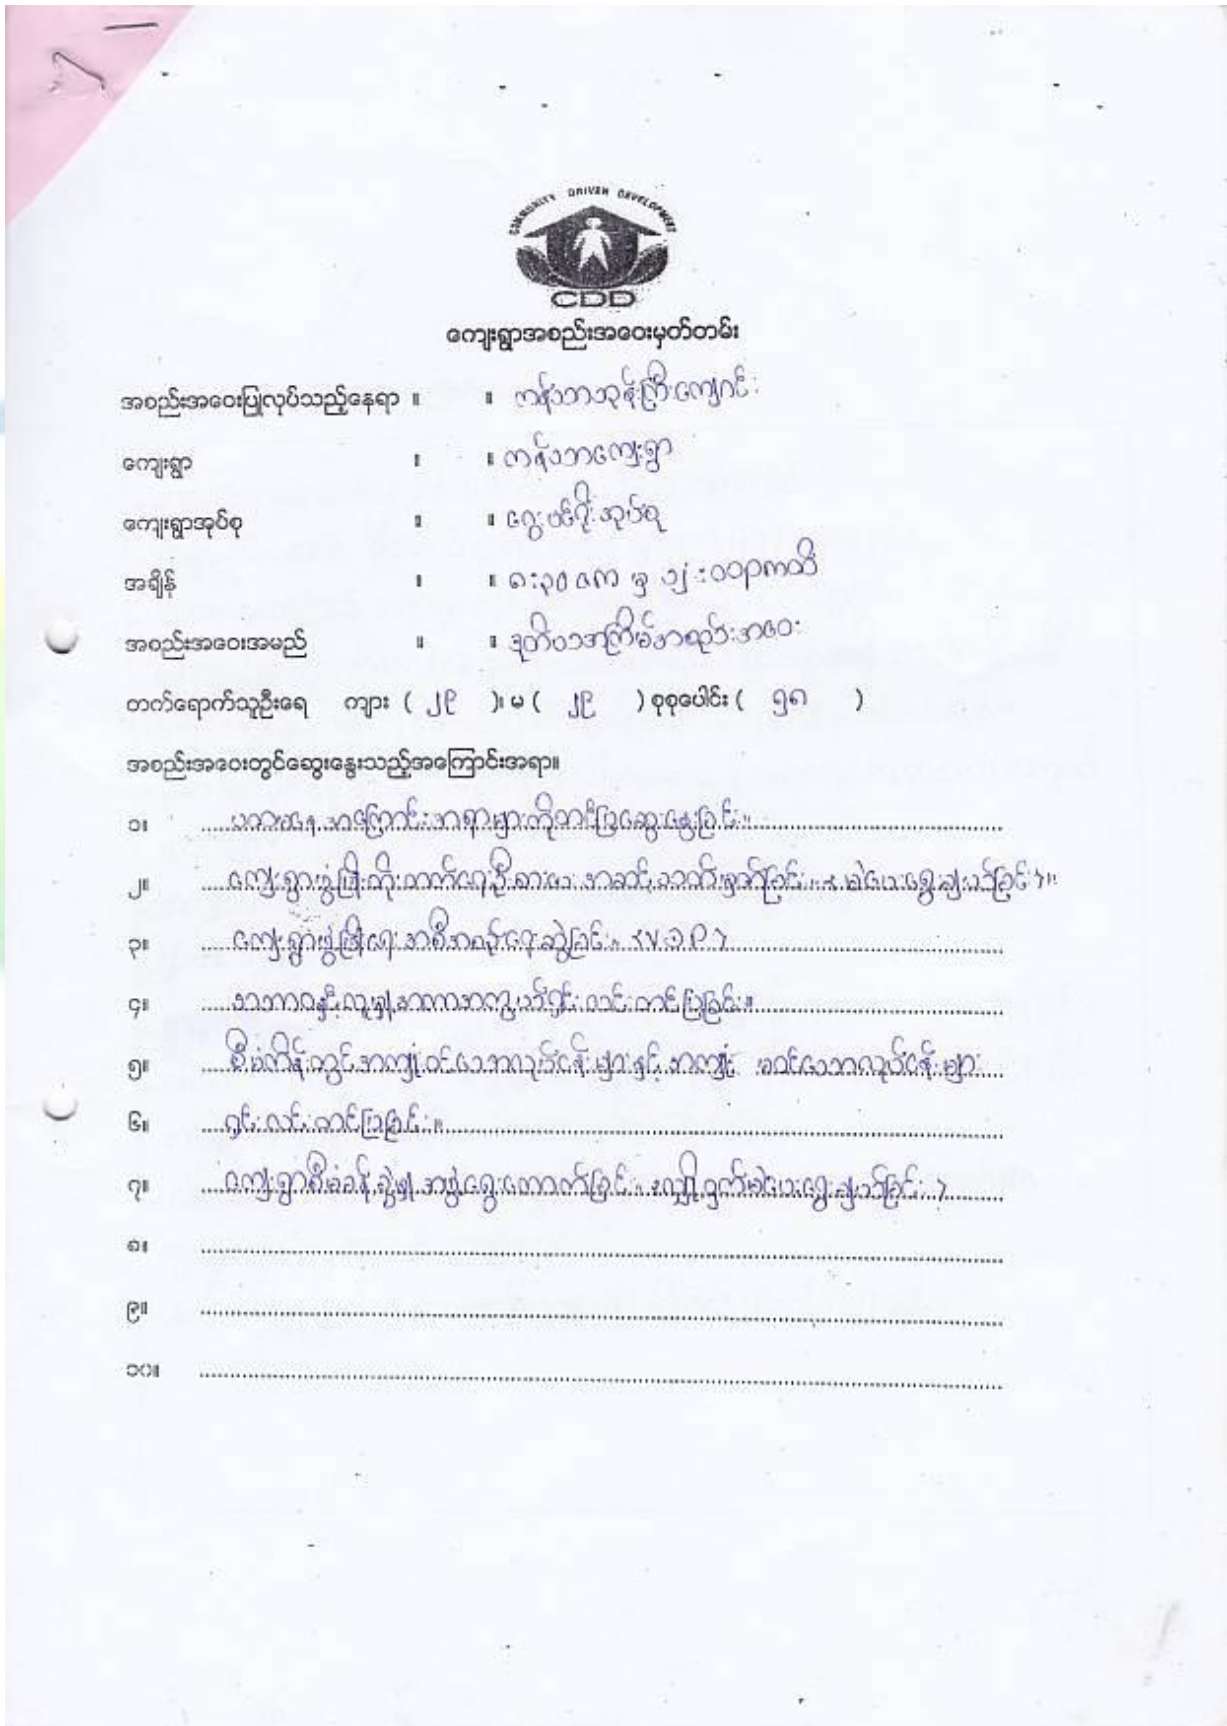 COMMUNITY DRIVEN DEVELOPMENT
CDD
ကျေးရွာအစည်းအဝေးမှတ်တမ်း
အစည်းအဝေးပြုလုပ်သည့်နေရာ ။ ။ ကန်သာဘုန်းကြီးကျောင်း
ကျေးရွာ ။ ။ ကန်သာကျေးရွာ
ကျေးရွာအုပ်စု ။ ။ အုပ်စု
အချိန် ။ ။ ၈:၃၀ မှ ၁၂:၀၀
အစည်းအဝေးအမည် ။ ။ ဒုတိယအကြိမ်အစည်းအဝေး
တက်ရောက်သူဦးရေ ကျား ( ၂၉ )၊ မ ( ၂၉ ) စုစုပေါင်း ( ၅၈ )
အစည်းအဝေးတွင်ဆွေးနွေးသည့်အကြောင်းအရာ။
၁။ အကြောင်းအရာများကိုတင်ပြဆွေးနွေးခြင်း။
၂။ ကျေးရွာဖွံ့ဖြိုးတိုးတက်ရေးဦးစားပေးအဆင့်သတ်မှတ်ခြင်း။ (မဲပေးရွေးချယ်ခြင်း)။
၃။ ကျေးရွာဖွံ့ဖြိုးရေးအစီအစဉ်ရေးဆွဲခြင်း။ (V.D.P)
၄။ သဘာဝနှင့်လူမှုအကာအကွယ်ရှင်းလင်းတင်ပြခြင်း။
၅။ စီမံကိန်းတွင်အကျုံးဝင်သောလုပ်ငန်းများနှင့်အကျုံး မဝင်သောလုပ်ငန်းများ
၆။ ရှင်းလင်းတင်ပြခြင်း။
၇။ ကျေးရွာစီမံခန့်ခွဲမှုအဖွဲ့ရွေးကောက်ခြင်း။ (လျှို့ဝှက်မဲပေးရွေးချယ်ခြင်း)
၈။
၉။
၁၀။